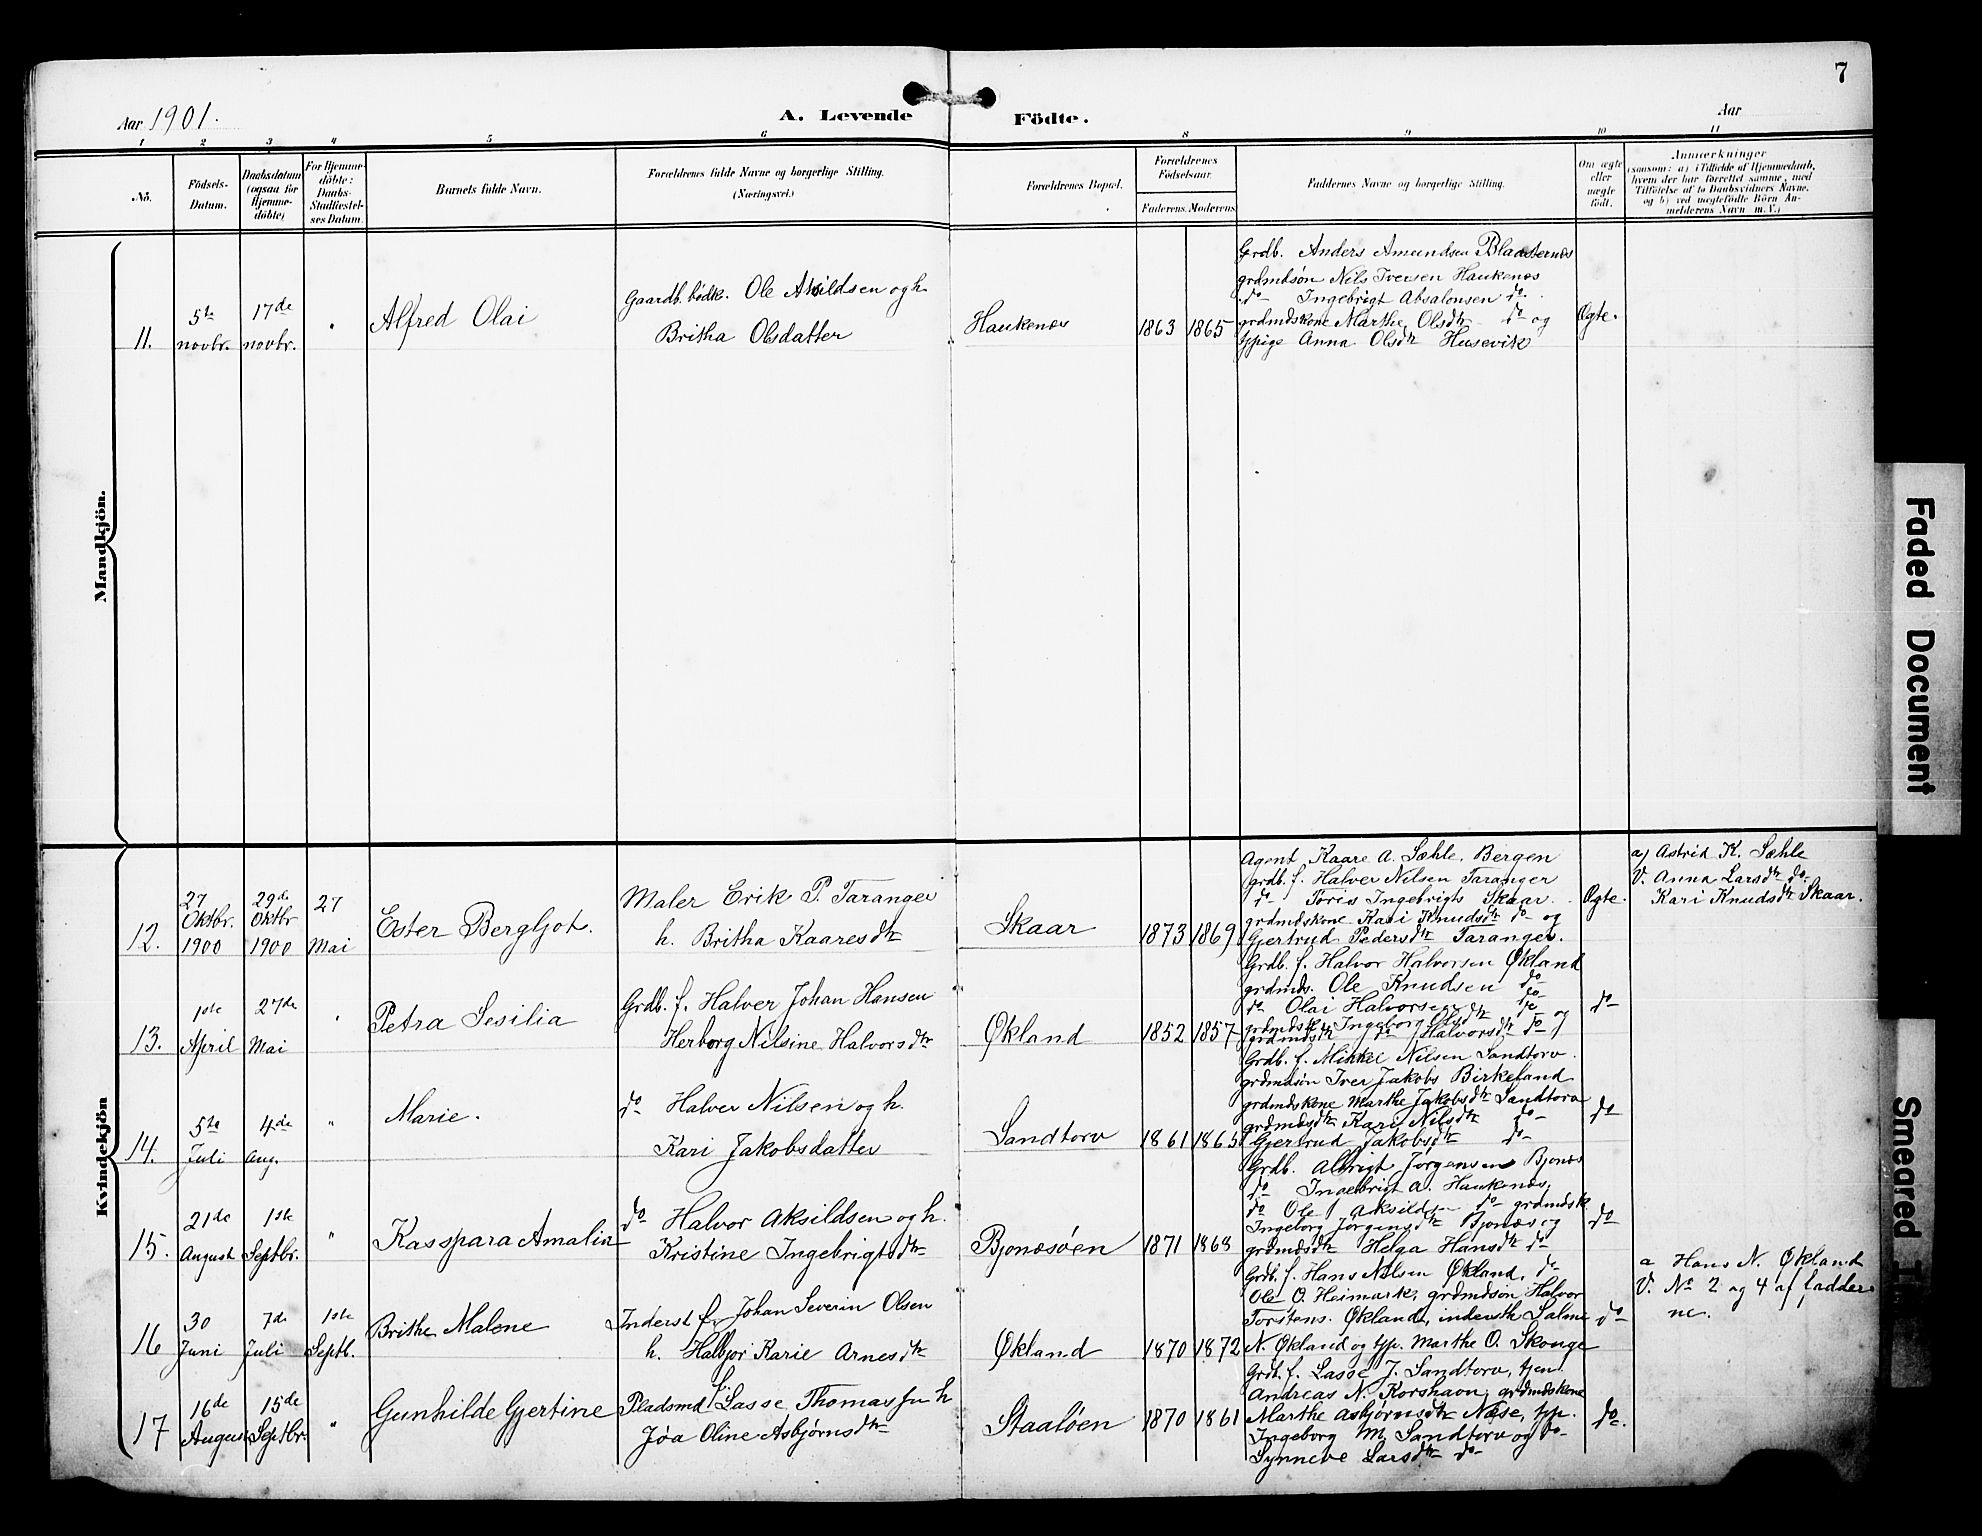 7
Aar 1901.
A. Levende
Födte.
Aar
1 2 3 4 5 6 8 9 10 11
No.
Födsels-
Datum.
Daabsdatum
(ogsaa for
Hjemme-
döbte)
For Hjemme-
döbte:
Daabs-
Stadfæstel-
ses Datum.
Barnets fulde Navn.
Forældrenes fulde Navne og borgerlige Stilling.
(Næringsvei.)
Forældrenes Bopæl.
Forældrenes
Födselsaar.
Faderens. Moderens.
Faddernes Navne og borgerlige Stilling.
Om ægte
eller
uægte
födt.
Anmærkninger
(saasom: a) i Tilfælde af Hjemmedaab,
hvem der har forrettet samme, med
Tilföielse af to Daabsvidners Navne.
og b) ved uægtefödte Börn An-
melderens Navn m. V.)
Mandkjön.
11.
5te
novbr.
17de
novbr.
"
Alfred Olai
Gaardb. bødk. Ole Aksildsen og h.
Britha Olsdatter
Haukenæs
1863 1865
Grdb. Anders Amundsen
grdmdsøn Nils Iversen Haukenæs
do Ingebrigt Absalonsen do.
grdmdskone Marthe Olsdtr do og
tjpige Anna Olsdtr Husevik
Ægte.
Kvindekjön
12.
27
Oktbr.
1900
29de
Oktbr
1900
27
Mai
Ester Bergljot.
Maler Erik P. Taranger
h. Britha Kaaresdtr
Skaar
1873 1869
Agent Kaare A. Sæhle, Bergen
grdb. f. Halver Nilsen Taranger
do Ingebrigts Skaar.
grdmdskone Kari Knudsdtr do og
Gjertrud Pedersdtr Taranger.
Ægte.
a) Astrid K. Sæhle
V. Anna Larsdtr do
Kari Knudsdtr Skaar.
13.
1ste
April
27de
Mai
"
Petra Sesilia
Grdb. f. Halver Johan Hansen
Herborg Nilsine Halvorsdtr
Økland
1852 1857
Grdb. f. Halvor Halvorsen Økland
grdmds. Ole Knudsen do
do Olai Halvorsen do
grdmdsk. Ingeborg do og
grdmdsdtr Halvorsdtr do
do
14.
5te
Juli
4de
Aug.
"
Marie.
do Halver Nilsen og h.
Kari Jakobsdatter
Sandtorv
1861 1865
Grdb. f. Mikkel Nilsen Sandtorv.
grdmdsøn Iver Jakobs Birkeland
grdmdskone Marthe Jakobsdtr Sandtorv
grdmdsdtr Kari Nilsdtr do
Gjertrud Jakobsdtr do
do
15.
21de
August
1ste
Septbr.
"
Kasspara Amalia
do Halvor Aksildsen og h.
Kristine Ingebrigtsdtr
Bjonæsøen
1871 1868
Grdb. Albrigt Jørgensen Bjonæs
do Ingebrigt A. Haukenæs,
do Ole Aksildsen do grdmdsk
Ingeborg Jørgensdtr Bjonæs og
grdmdsdtr Helga Hansdtr do
do
16
30
Juni
7de
Juli
1ste
Septb.
Brithe Malene
Inderst f. Johan Severin Olsen
h. Halbjør Karie Arnesdtr
Økland
1870 1872
Grdb. f. Hans Nilsen Økland, do
Ole O. Heimark, grdmdsøn Halvor
Torstens. Økland, inderstk. Salmi
N. Økland og tjp. Marthe O. Skouge
do
a Hans N. Økland
V. No 2 og 4 af fadder-
ne.
17
16de
August
15de
Septbr.
"
Gunhilde Gjertine
Pladsmd f. Lasse Thomassen h
Jøa Oline Asbjørnsdtr
Staaløen
1870 1861
Grdb. f. Lasse J. Sandtorv, tjen.
Andreas N. Korshavn, grdmdskone
Marthe Asbjørnsdtr Næse, tjp.
Ingeborg M. Sandtorv og do
Synneve Larsdtr do
do.
Faded Document
Smeared